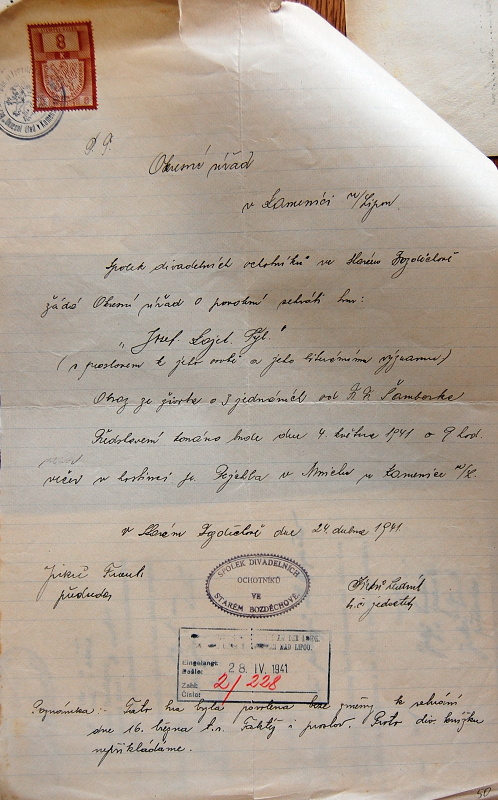 8
K
P. T.
Okresní úřad
v Kamenici n/Lipou.
Spolek divadelních ochotníků ve Starém Bozděchově
žádá Okresní úřad o povolení sehráti hru:
"Josef Kajet. Tyl."
(s proslovem k jeho osobě a jeho literárnímu významu)
Obraz ze života o 3 jednáních od F. F. Šamberka
Představení konáno bude dne 4. května 1941 o 9 hod.
večer v hostinci p. v u Kamenice n/L.
V Starém Bozděchově dne 24. dubna 1941.
Jirků Frant.
předseda
SPOLEK DIVADELNÍCH
OCHOTNÍKŮ
VE
STARÉM BOZDĚCHOVĚ.
t.č. jednatel
AN DER LINDE.
NAD LIPOU.
Eingelangt:
Došlo:
28. IV. 1941
Zahl:
Číslo:
2/228
Poznámka: Tato hra byla povolena beze změny k sehrání
dne 16. března t.r. Taktéž i proslov. Proto div. knížku
nepřikládáme.
50